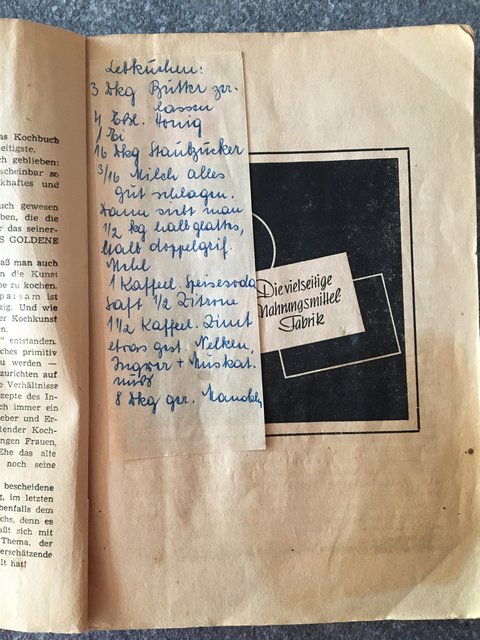 as Kochbuch
eitigste,
ch geblieben:
scheinbar so
khaftes und
uch gewesen
ben, die die
r das seiner-
S GOLDENE
aß man auch
n die Kunst
be zu kochen.
parsam ist
zig. Und wie
er Kochkunst
n.
" entstanden.
sches primitiv
zu werden —
zurichten auf
e Verhältnisse
zepte des In-
ch immer ein
eber und Er-
tender Koch-
ngen Frauen,
Ehe das alte
noch seine
bescheidene
g, im letzten
benfalls dem
chs, denn es
aßt sich mit
Thema, der
erschätzende
lt hat!
Lebkuchen:
3 Dkg Butter zer-
lassen
4 Eßl. Honig
1 Ei
16 Dkg Staubzucker
3/16 Milch alles
gut schlagen.
Dann siebt man
1/2 kg halb glattes,
halb doppelgrif.
Mehl
1 Kaffeel. Speisesoda
Saft 1/2 Zitrone
1 1/2 Kaffeel. Zimt
etwas gest. Nelken,
Ingwer + Muskat.
nuß
8 Dkg ger. Mandeln
Die vielseitige
Nahrungsmittel
Fabrik